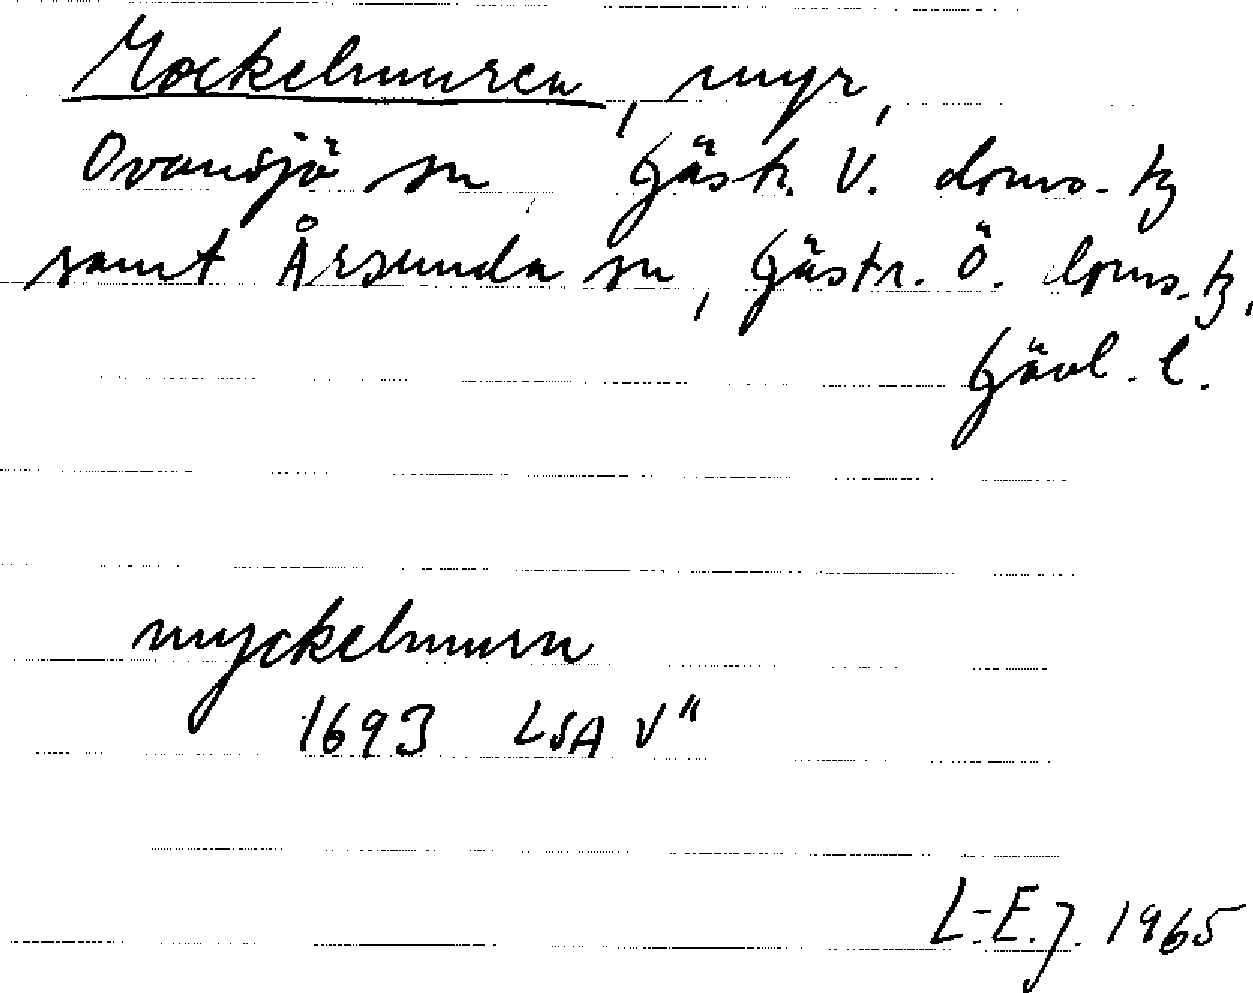 Mockelmuren, myr,
Ovansjö sn Gästr. V. doms. tg
samt Årsunda sn, Gästr. Ö. doms. tg,
Gävl. l.
myckelmurn
1693 LSA V"
L-E.J. 1965